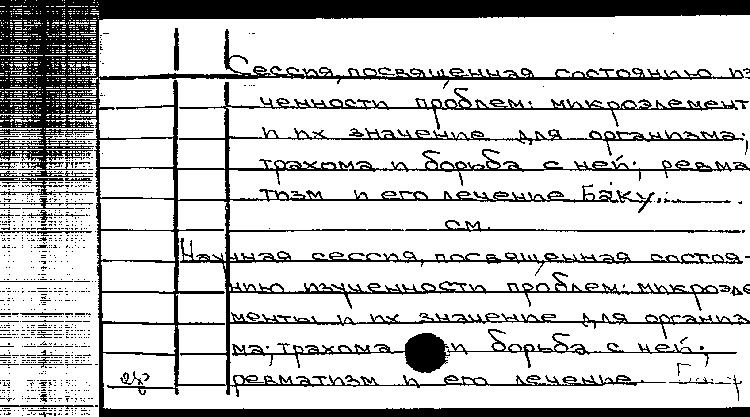 Сессия, посвященная состоянию из
ченности проблем: микроэлемент
и их значение для организма;
трахома и борьба с ней; ревма
тизм и его лечение Баку.
см.
Научная сессия, посвященная состоя-
нию изученности проблем: микроэле
менты и их значение для организ
ма; трахома и борьба с ней;
ревматизм и его лечение. Баку